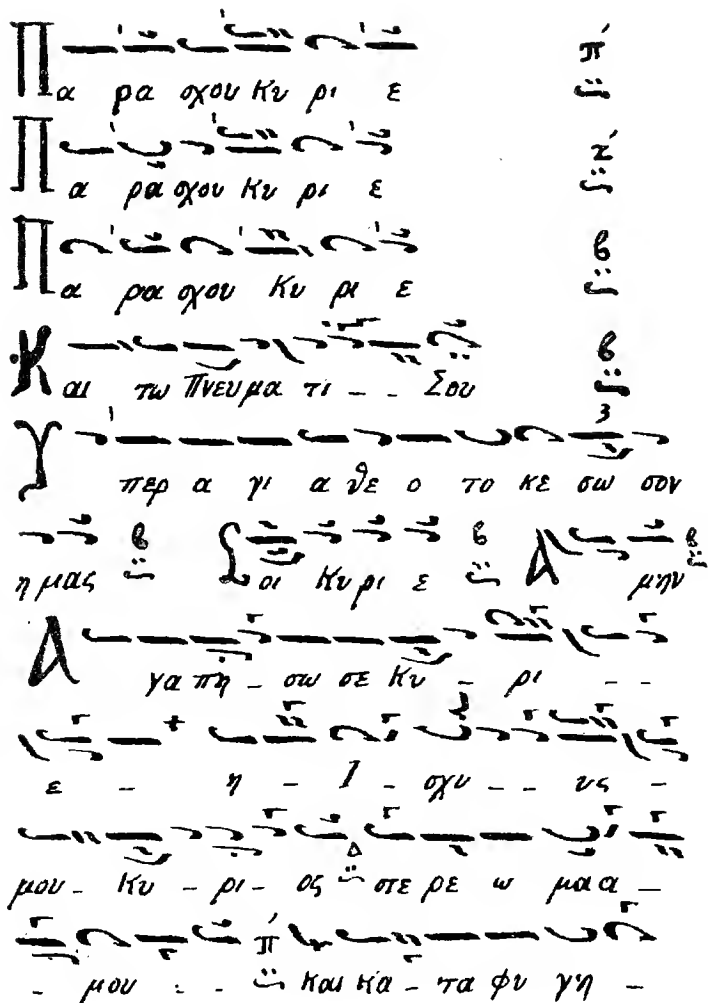 Πα ρα σχου Κυ ρι ε π̈
Πα ρα σχου Κυ ρι ε
Πα ρα σχου Κυ ρι ε β
Και τω Πνευμα τι _ _ Σου β
Υ περ α γι α θε ο το κε σω σον
η μας β Σοι Κυ ρι ε β Α μην β
Α γα πη _ σω σε Κυ _ ρι _ _
ε _ η _ Ι _ σχυ _ _ υς _
μου _ Κυ _ ρι _ ος Δ στε ρε ω μα α _
_ μου _ _ π και κα _ τα φυ γη _